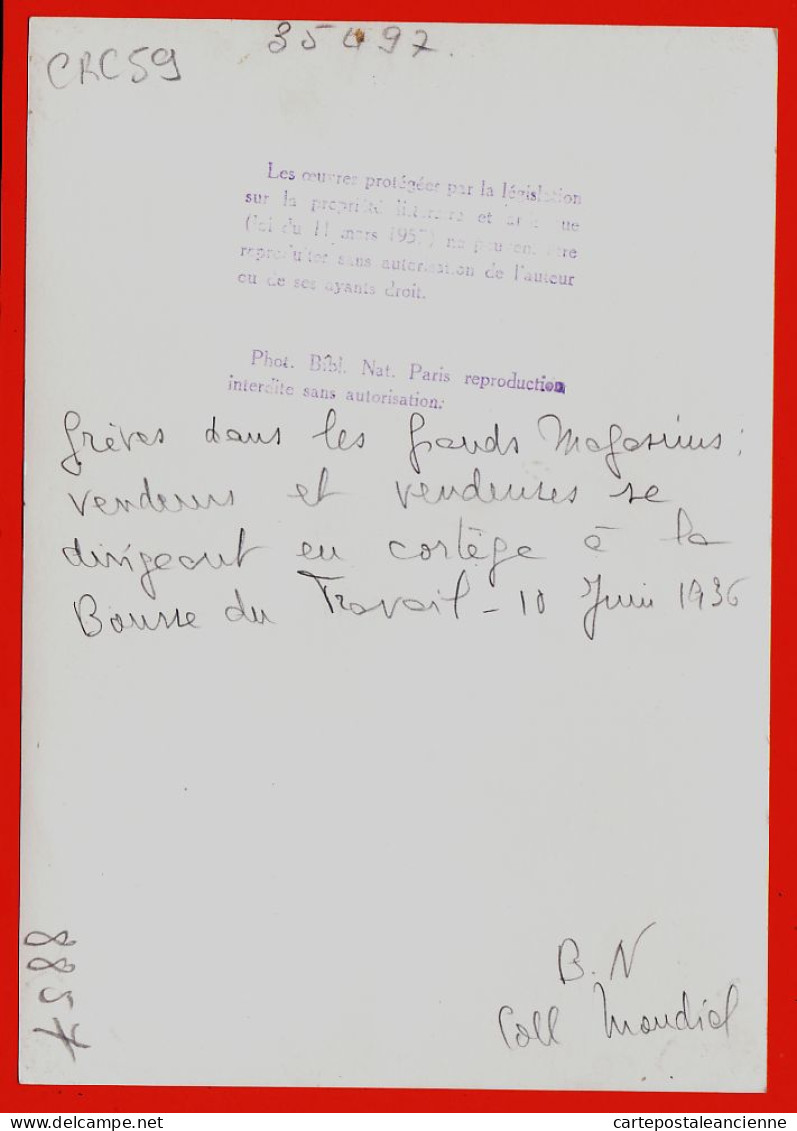 35497.
CRC59
Les œuvres protégées par la législation
sur la propriété littéraire et artistique
(loi du 11 mars 1957) ne peuvent être
reproduites sans autorisation de l'auteur
ou de ses ayants droit.
Phot. Bibl. Nat. Paris reproduction
interdite sans autorisation.
Grèves dans les Grands Magasins :
vendeurs et vendeuses se
dirigeant en cortège à la
Bourse du Travail - 10 Juin 1936
B.N
Coll Mondial
delcampe.net
cartepostaleancienne